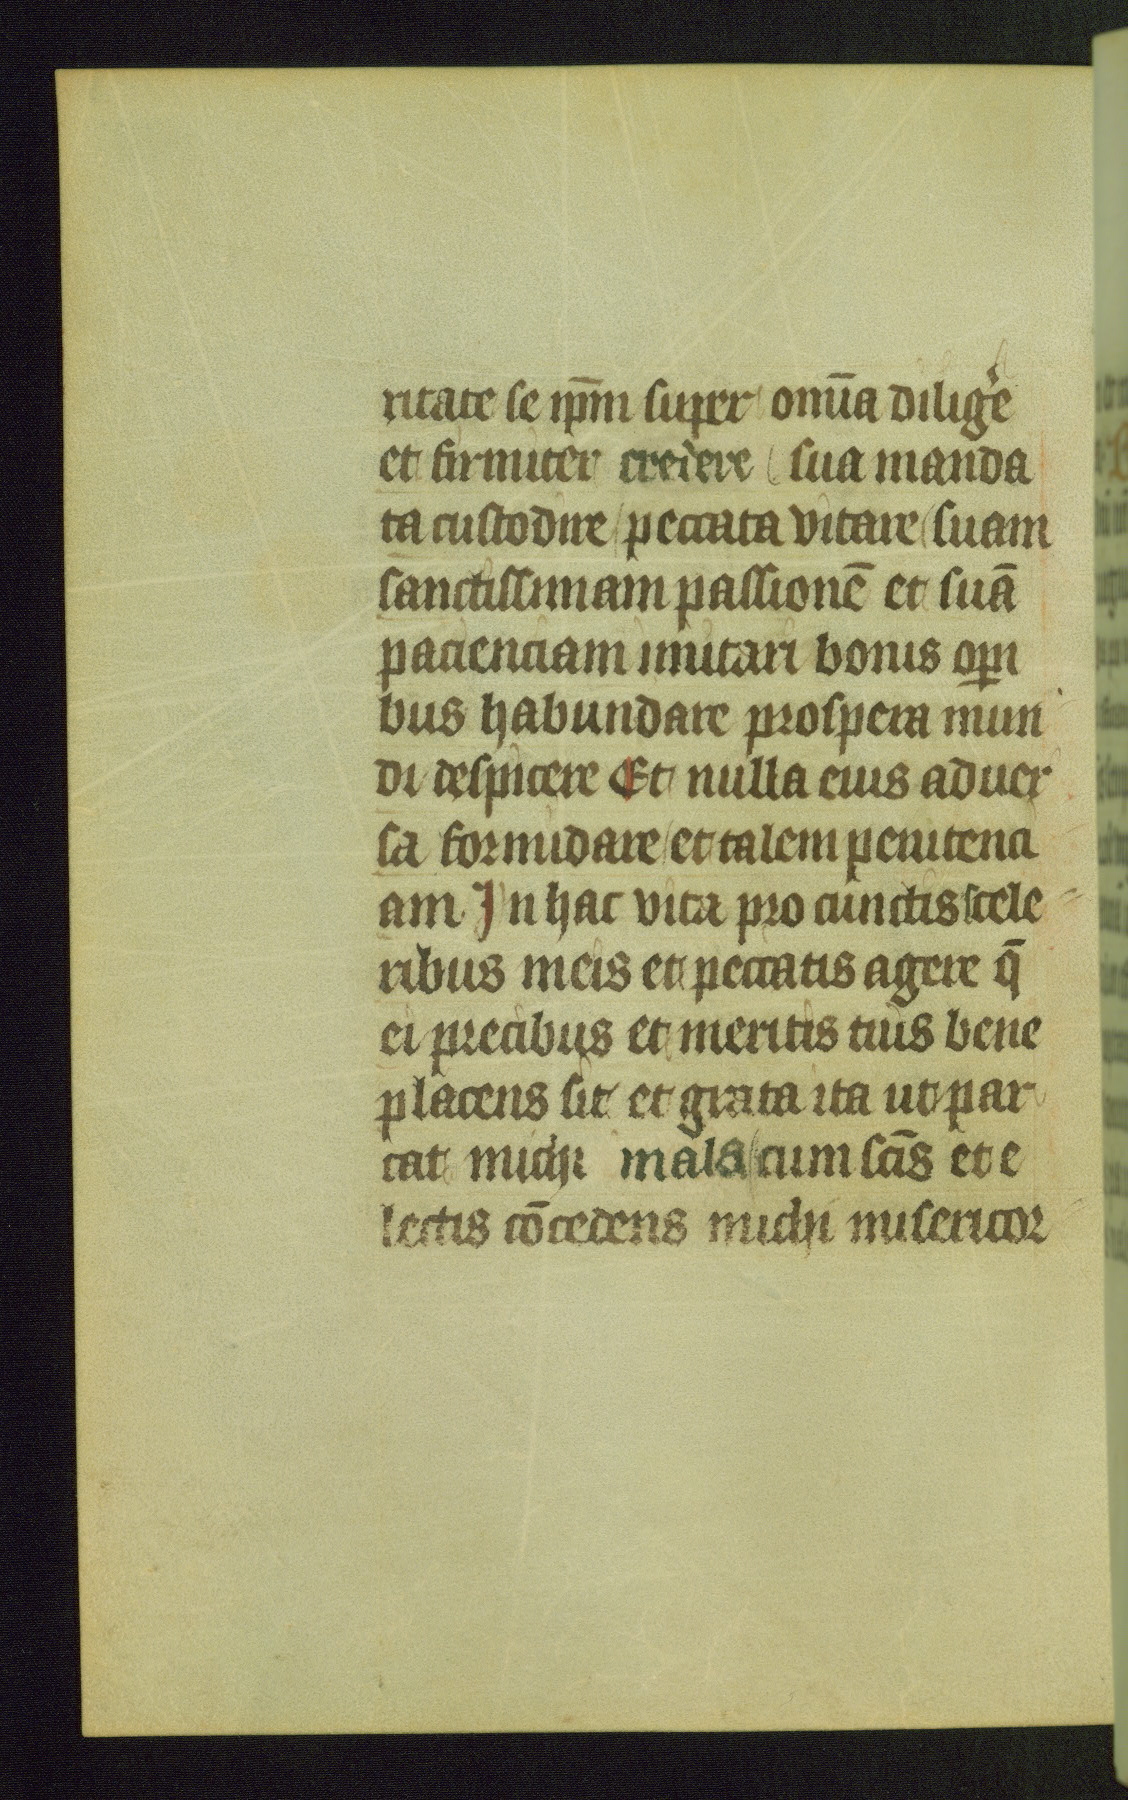 ritate se ip̄m super om̄ia diligͤe
et firmiter credere / sua manda
ta custodire / peccata vitare / suam
sanctissimam passionē et suā
pacienciam imitari bonis oꝑi
bus habundare prospera mun
di despicere Et nulla eius aduer
sa formidare / et talem penitenci
am In hac vita pro cunctis scele
ribus meis et peccatis agere q̄
ei precibus et meritis tuis bene
placens sit et grata ita ut par
cat michi mala / cum sc̄is et e
lectis cōcedens michi misericor